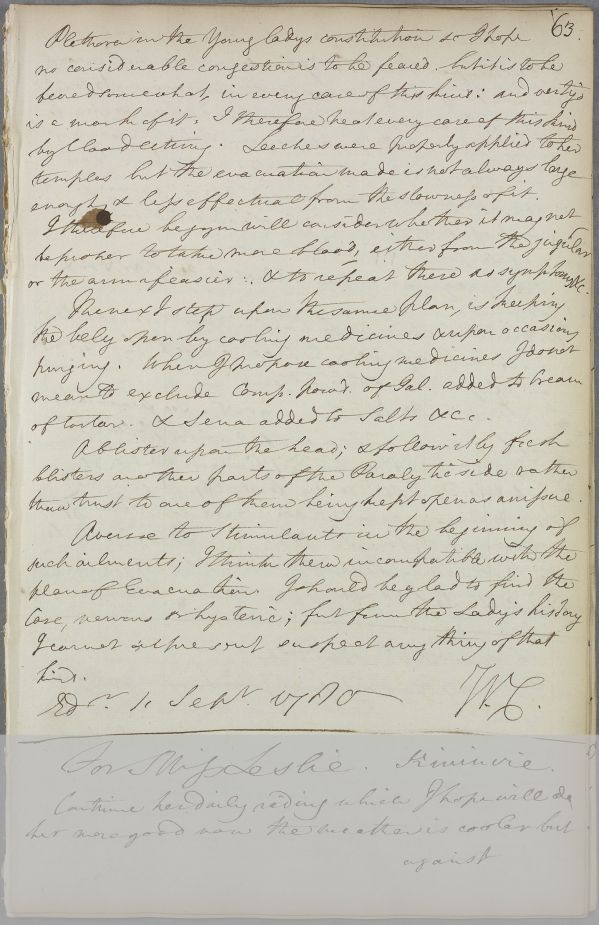 63.
Plethora in the Young ladys constitution so I hope
no considerable congestion is to be feared. but it is to be
feared somewhat, in every case of this kind: and vertigo
is a mark of it. I therefore treat every case of this kind
by blood letting. Leeches were properly applied to her
temples but the evacuation made is not always large
enough & less effectual from the slowness of it.
I therefore beg you will consider whether it may not
be proper to take more blood, either from the jugular
or the arm if easier. & to repeat there as symptoms &c.
The next step upon the same plan, is keeping
the bely open by cooling medicines & upon occasion
purging. When I propose cooling medicines I do not
mean to exclude Comp. powd. of Jal. added to Cream
of tartar. & Sena added to Salts &c.
A blister upon the head; & follow it by fresh
blisters on other parts of the Paralytic side rather
than trust to one of them being kept open as an issue.
Averse to Stimulants in the beginning of
such ailments; I think them incompatible with the
plan of Evacuation I should be glad to find the
Case, nervous or hysteric; but from the Lady's history
I cannot at present suspect any thing of that
kind.
Edr. 11 Septr. 1780 W.C.
For Miss Leslie. Kininvie.
Continue her daily riding which I hope will do
her more good now the weather is cooler but
against